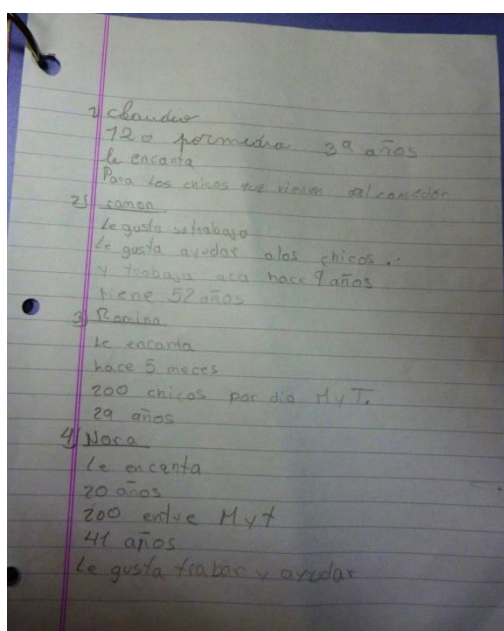 1) Claudio
120 por media 39 años
le encanta
Para los chicos que vienen al comedor
2) ramon
Le gusta su trabajo
Le gusta ayudar alos chicos .
y trabaja aca hace 9 años
tiene 52 años
3) Romina
le encanta
hace 5 meces
200 chicos por dia M y T.
29 años
4) Nora
Le encanta
20 años
200 entre M y t
41 años
Le gusta trabar y ayudar